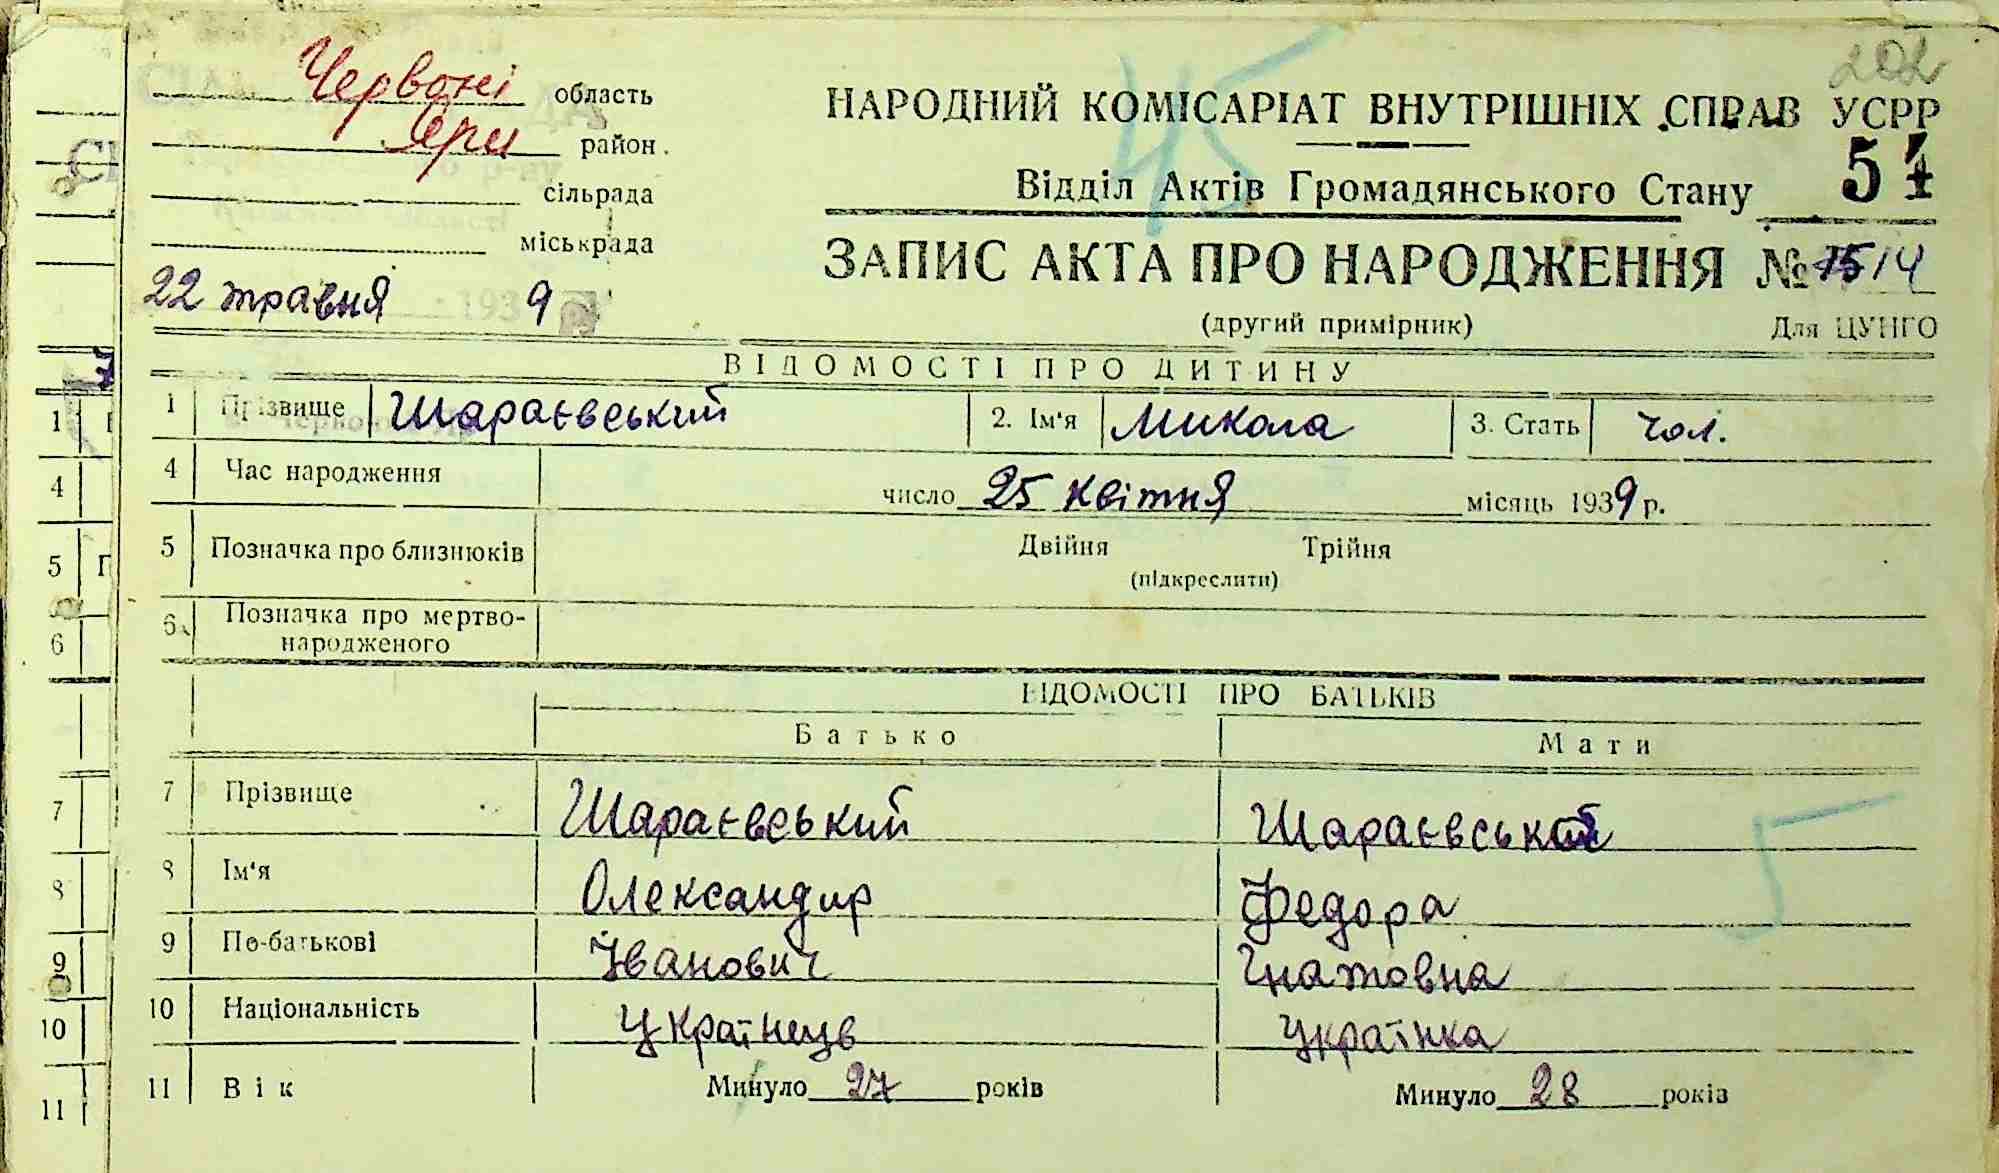 202
Червоні область
Яри район
сільрада
міськрада
22 травня 1939
45
НАРОДНИЙ КОМІСАРІАТ ВНУТРІШНІХ СПРАВ УСРР
Відділ Актів Громадянського Стану 54
ЗАПИС АКТА ПРО НАРОДЖЕННЯ № 15 14
(другий примірник) Для ЦУНГО
ВІДОМОСТІ ПРО ДИТИНУ
1 Прізвище Шараєвський 2. Ім'я Микола 3. Стать чол.
4 Час народження число 25 квітня місяць 1939 р.
5 Позначка про близнюків Двійня Трійня
(підкреслити)
6 Позначка про мертво-
народженого
ВІДОМОСТІ ПРО БАТЬКІВ
Батько Мати
7 Прізвище Шараєвський Шараєвська
8 Ім'я Олександир Федора
9 По-батькові Іванович Гнатовна
10 Національність Українець Українка
11 Вік Минуло 27 років Минуло 28 років
1
4
5
6
7
8
9
10
11